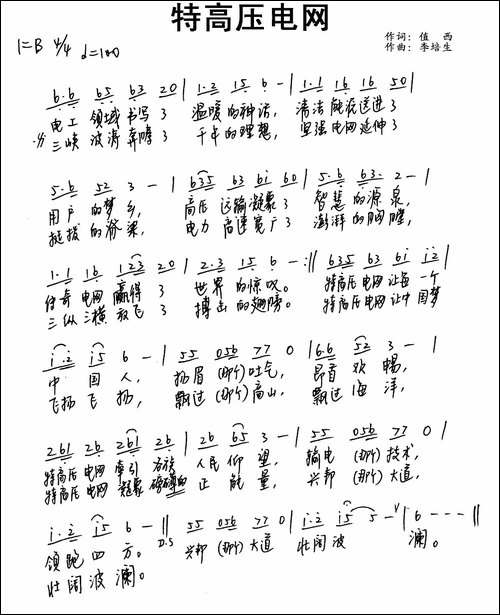 特高压电网
1=B 4/4 ♩=100
作词：值 西
作曲：李培生
6·6 65 63 20 | 1·2 15 6 - | 1·1 16 16 50 |
电工 领域 书写了 温暖的神话， 清洁能源送进了
三峡 波涛 奔腾了 千年的理想， 坚强电网延伸了
5·6 52 3 - | 635 63 6i 60 | 5·6 63· 2 - |
用户 的梦乡， 高压 远输凝聚了 智慧 的源泉，
挺拔 的脊梁， 电力 高速宽广了 澎湃 的胸膛，
1·1 16 123 20 | 2·3 15 6 - :|| 635 63 6i i2 |
传奇 电网 赢得了 世界 的惊叹。 特高压电网让每一个
三纵 三横 放飞了 搏击 的翅膀。 特高压电网让中国梦
i·2 i5 6 - | 55 056 77 0 | 6·6 52 3 - |
中 国 人， 扬眉 (那个) 吐气， 昂首 欢 畅，
飞扬 飞 扬， 飘过 (那个) 高山， 飘过 海 洋，
261 26 261 26 | 26 65 3 - | 55 056 77 0 |
特高压 电网 牵引 各族 人民 仰 望， 输电 (那个) 技术，
特高压 电网 凝聚 磅礴的 正 能 量， 兴邦 (那个) 大道，
i·2 i5 6 - || 55 056 77 0 | i·2 i5 5 - | 6 - - - ||
领跑 四 方。 D.S 兴邦 (那个) 大道 壮阔 波 澜。
壮阔 波 澜。